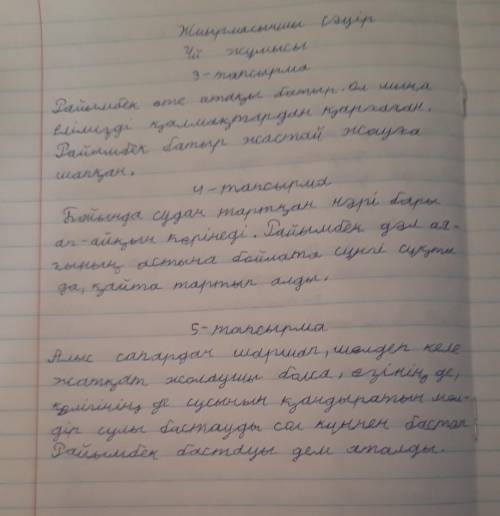 Жиырмасыншы сәуір
Үй жұмысы
3-тапсырма
Райымбек өте атақты батыр. Ол мына
елімізді қалмақтардан қорғаған.
Райымбек батыр жастай жауға
шапқан.
4-тапсырма
Бойында судан тартқан нәрі бары
ап-айқын көрінеді. Райымбек дәл ая-
ғының астына бойлата сүңгі сұқты
да, қайта тартып алды.
5-тапсырма
Алыс сапардан шаршап, шөлдеп келе
жатқат жолаушы болса, өзінің де,
көлігінің де сусынын қандыратын мөл-
дір сулы бастауды сол күннен бастап
Райымбек бастауы деп аталды.